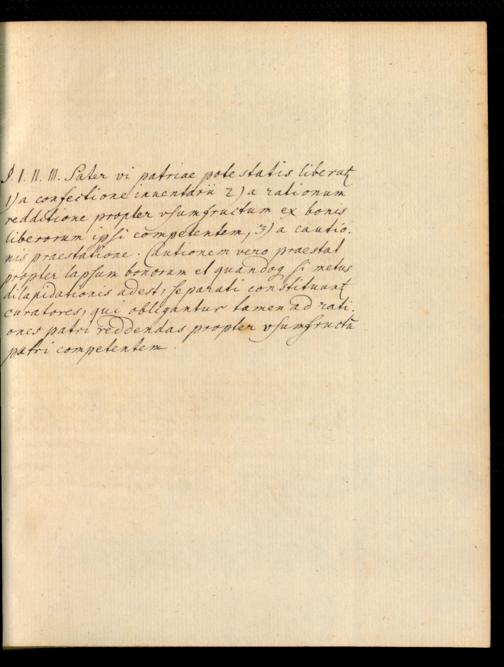 §. I. II. III. Pater vi patriae potestatis liberat͠
1) a confectione inuentarii 2) a rationum
redditione propter vsumfructum ex bonis
liberorum ipsi competentem, 3) a cautio-
nis praestatione. Cautionem vero praestat
propter lapsum bonorum et quandoq si metus
dilapidationis adest, separati constituunt͠
curatores, qui obligantur tamen ad rati-
ones patri reddendas propter vsumfructū
patri competentem.